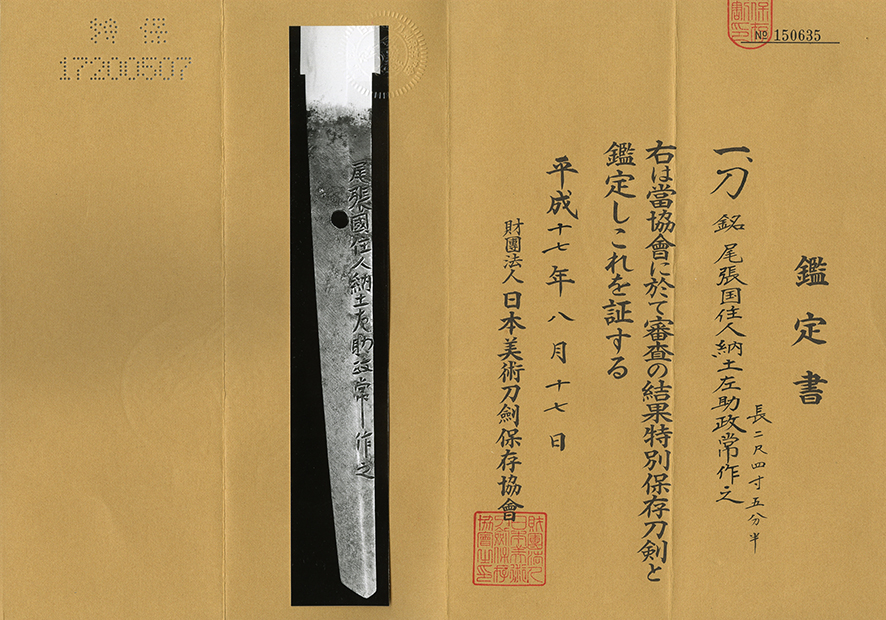 特保
17200507
No 150635
鑑定書
一、刀 銘 尾張国住人納土左助政常作之
長二尺四寸五分半
右は當協會に於て審査の結果特別保存刀剣と
鑑定しこれを証する
平成十七年八月十七日
財團法人日本美術刀劍保存協會
尾張國住人納土左助政常作之